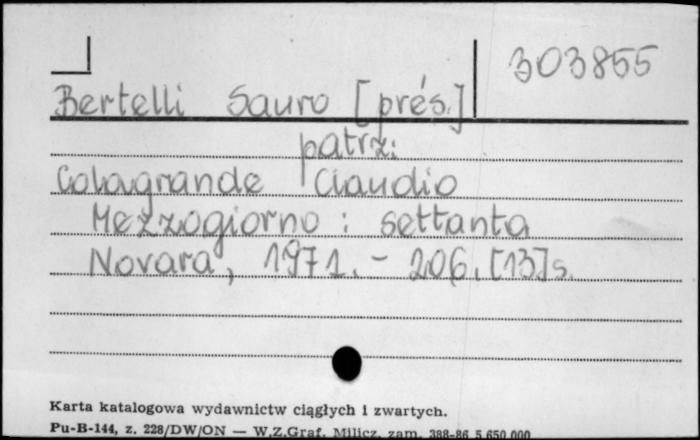 303855
Bertelli Sauro [prés.]
patrz:
Colagrande Claudio
Mezzogiorno : settanta
Novara, 1971. - 206, [13] s.
Karta katalogowa wydawnictw ciągłych i zwartych.
Pu-B-144, z. 228/DW/ON — W.Z.Graf. Milicz, zam. 388-86 5 650 000